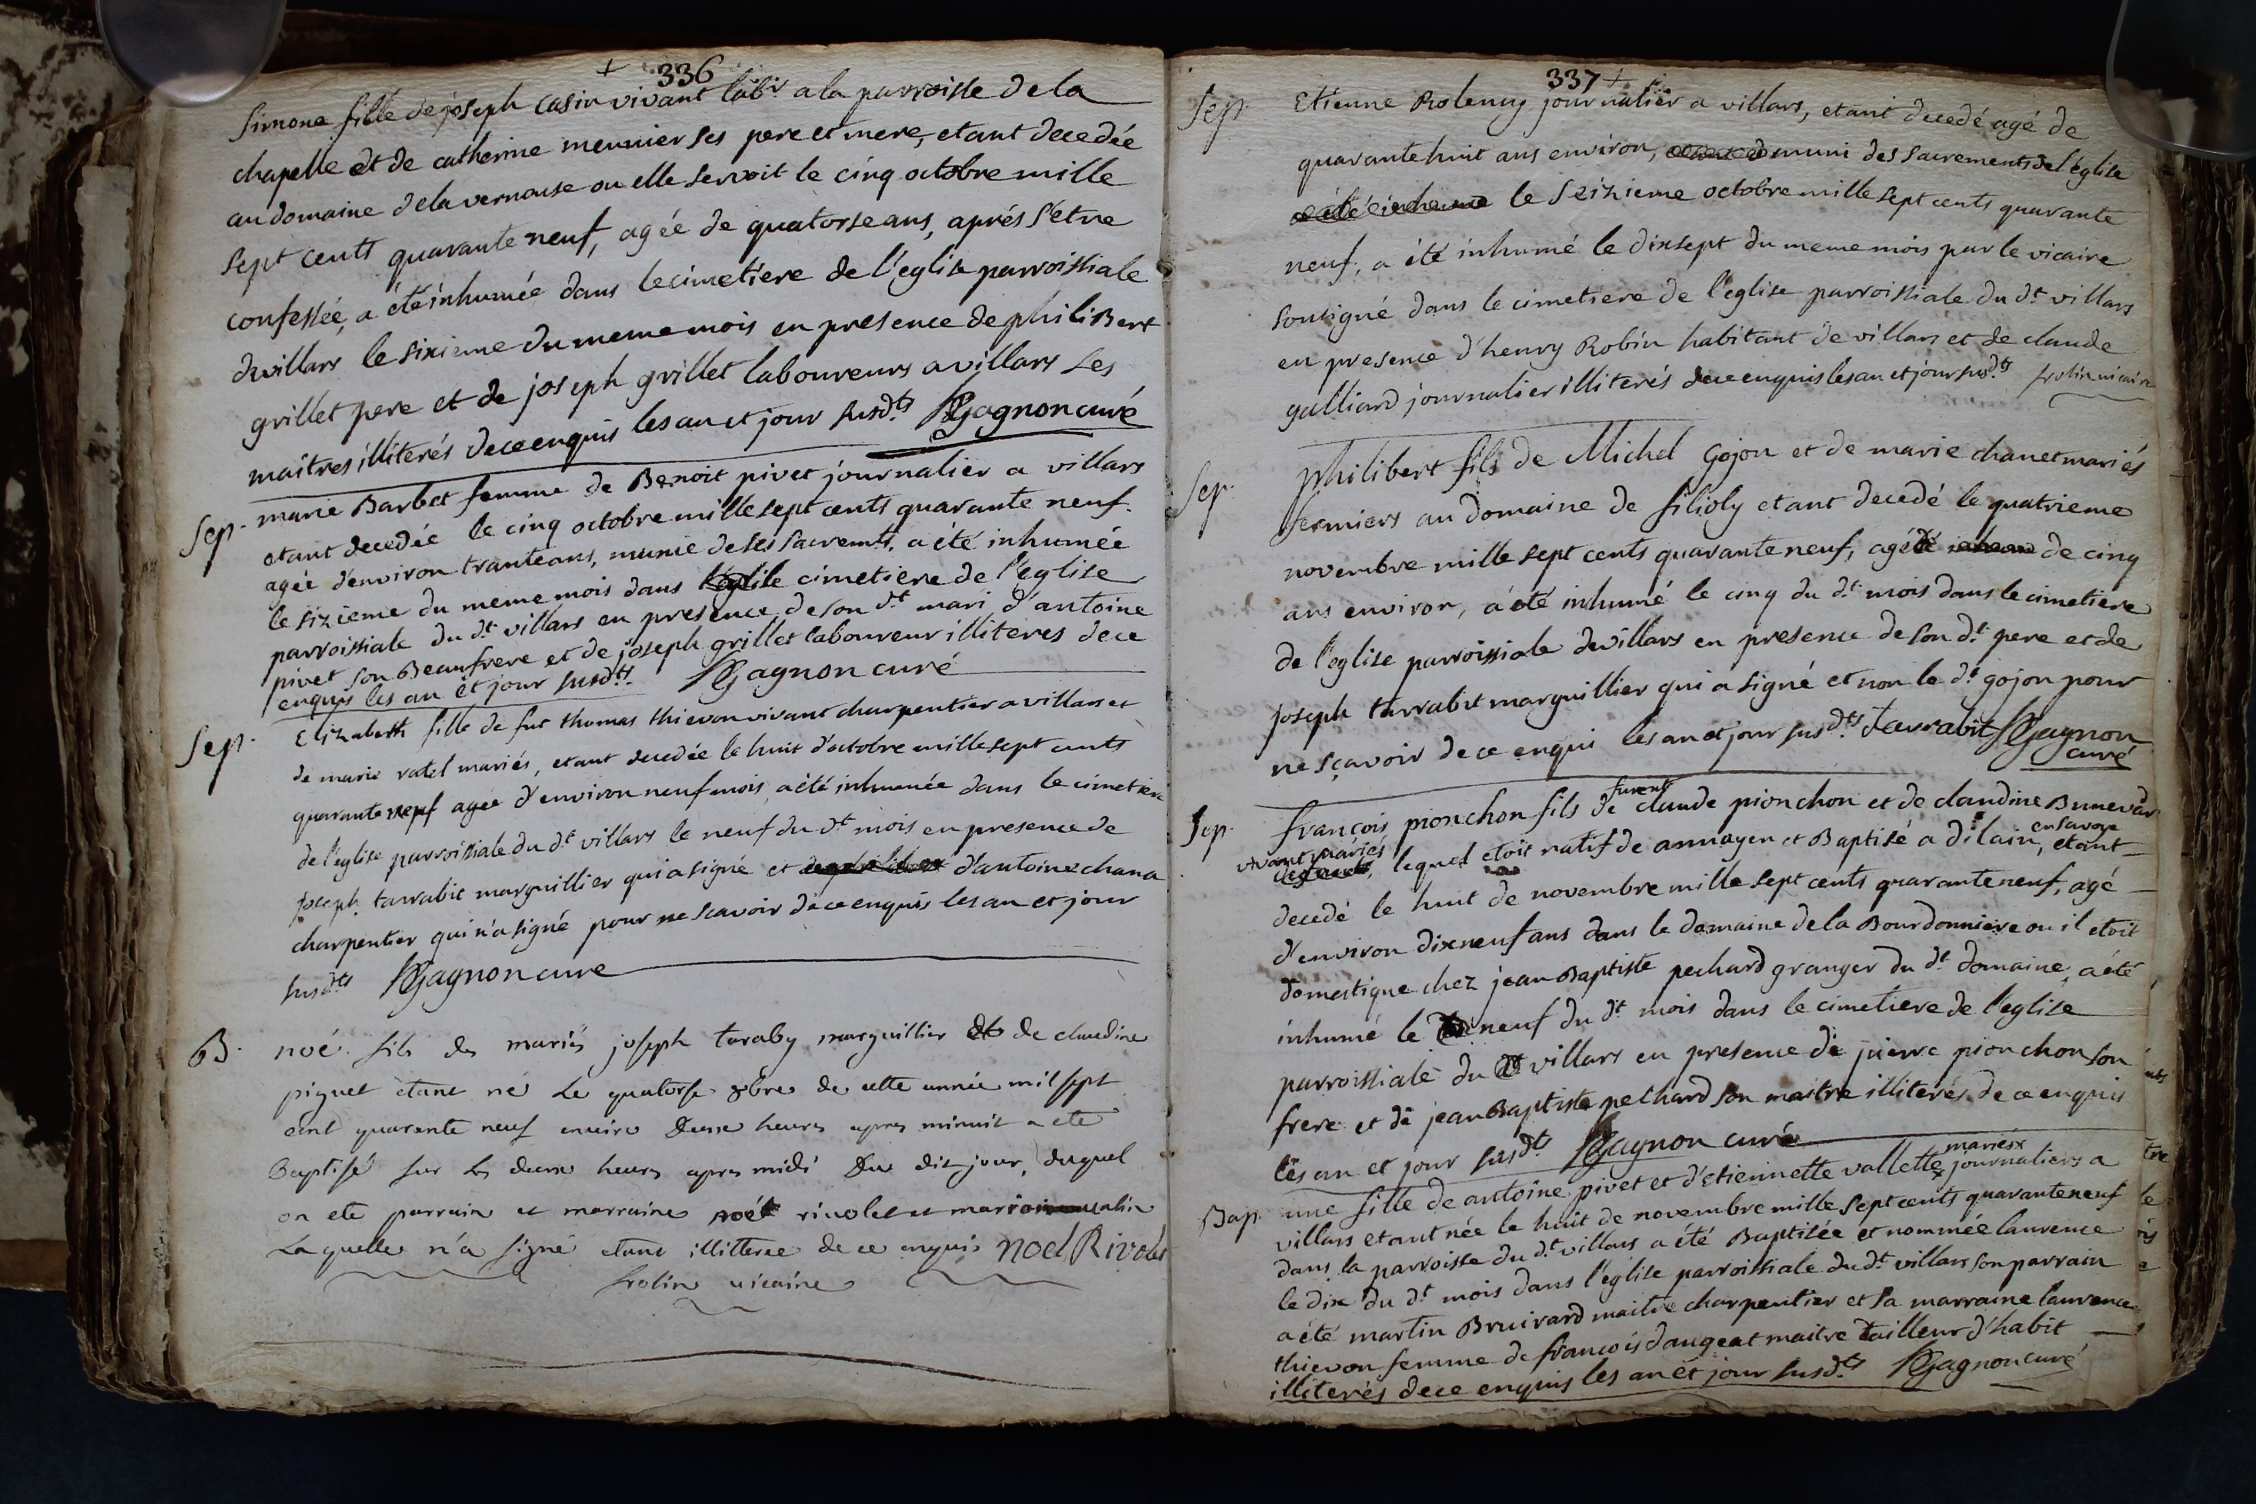 336
Simone fille de joseph Casin vivant lab.r a la parroisse de la
chapelle et de catherine meunier ses pere et mere, etant decedée
au domaine dela vernouse ou elle servoit le cinq octobre mille
sept cents quarante neuf, agée de quatorse ans, aprés s'être
confessée, a été inhumée dans le cimetiere de l'eglise parroissiale
du villars le sixieme du meme mois en presence de philiBert
grillet pere et de joseph grillet laboureurs a villars Les
maitres illiterés de ce enquis les an et jour susd.ts Gagnon curé
Sep. marie Barbet femme de Benoit pivet journalier a villars
etant decedée le cinq octobre mille sept cents quarante neuf.
agée d'environ trante ans, munie de ses sacrem.ts, a été inhumée
le sizieme du meme mois dans l'eglise cimetiere de l'eglise
parroissiale du d.t villars en presence de son d.t mari d'antoine
pivet son Beaufrere et de joseph grillet laboureur illiteres de ce
enquis les an et jour susd.ts Gagnon curé
Sep. Elizabeth fille de fut thomas thievon vivant charpentier a villars et
de marie ratel mariés, etant decedée le huit d'octobre mille sept cents
quarante neuf agée d'environ neuf mois, a été inhumée dans le cimetiere
de l'eglise parroissiale du d.t villars le neuf du d.t mois en presence de
joseph tarrabit marguillier qui a signé et d'antoine chana
charpentier qui n'a signé pour ne scavoir de ce enquis les an et jour
susd.ts Gagnon cure
B. noé fils des mariés joseph taraby marguillier et de claudine
piguet étant né Le quatorse 8bre de cette année mil sept
cent quarente neuf environ deux heures apres minuit a eté
Baptisé sur les deux heures apres midi du dit jour, duquel
on eté parrain et marraine noél rivolet et
Laquelle n'a signé etant illitterée de ce enquis noel Rivolet
frolin vicaire
337
Sep. Etienne Rolency journalier a villars, etant decedé agé de
quarante huit ans environ, muni des sacrements de l'église
le seizieme octobre mille sept cents quarante
neuf, a été inhumé le dixsept du meme mois par le vicaire
sousigné dans le cimetiere de l'eglise parroissiale du d.t villars
en presence d'henry Robin habitant de villars et de claude
galliard journalier illiterés de ce enquis les an et jour susd.ts frolin vicaire
Sep. philibert fils de Michel Gojon et de marie chanet mariés
fermiers au domaine de filioly etant decedé le quatrieme
novembre mille sept cents quarante neuf, agé de cinq
ans environ, a été inhumé le cinq du d.t mois dans le cimetiere
de l'eglise parroissiale du villars en presence de son d.t pere et de
joseph tarrabit marguillier qui a signé et non le d.t gojon pour
ne sçavoir de ce enqui les an et jour susd.ts tarrabit Gagnon
curé
Sep. françois pionchon fils de furent claude pionchon et de claudine
vivant mariés, lequel etoit natif de annoyen et Baptisé a dilain, en savoye etant
decedé le huit de novembre mille sept cents quarante neuf, agé
d'environ dixneuf ans dans le domaine de la Bourdonniere ou il etoit
domestique chez jean Baptiste pechard granger du d.t domaine, a été
inhumé le neuf du d.t mois dans le cimetiere de l'eglise
parroissiale du villars en presence de pierre pionchon son
frere et de jean Baptiste pechard son maitre illiterés de ce enquis
les an et jour susd.ts Gagnon curé
Bap. une fille de antoine pivet et d'etiennette vallette mariés journaliers a
villars etant née le huit de novembre mille sept cents quarante neuf
dans la parroisse du d.t villars a été Baptisée et nommée laurence
le dix du d.t mois dans l'eglise parroissiale du d.t villars son parrain
a été martin Bruivard maitre charpentier et sa marraine laurence
thievon femme de françois daugeat maitre tailleur d'habit
illiterés de ce enquis les an et jour susd.ts Gagnon curé